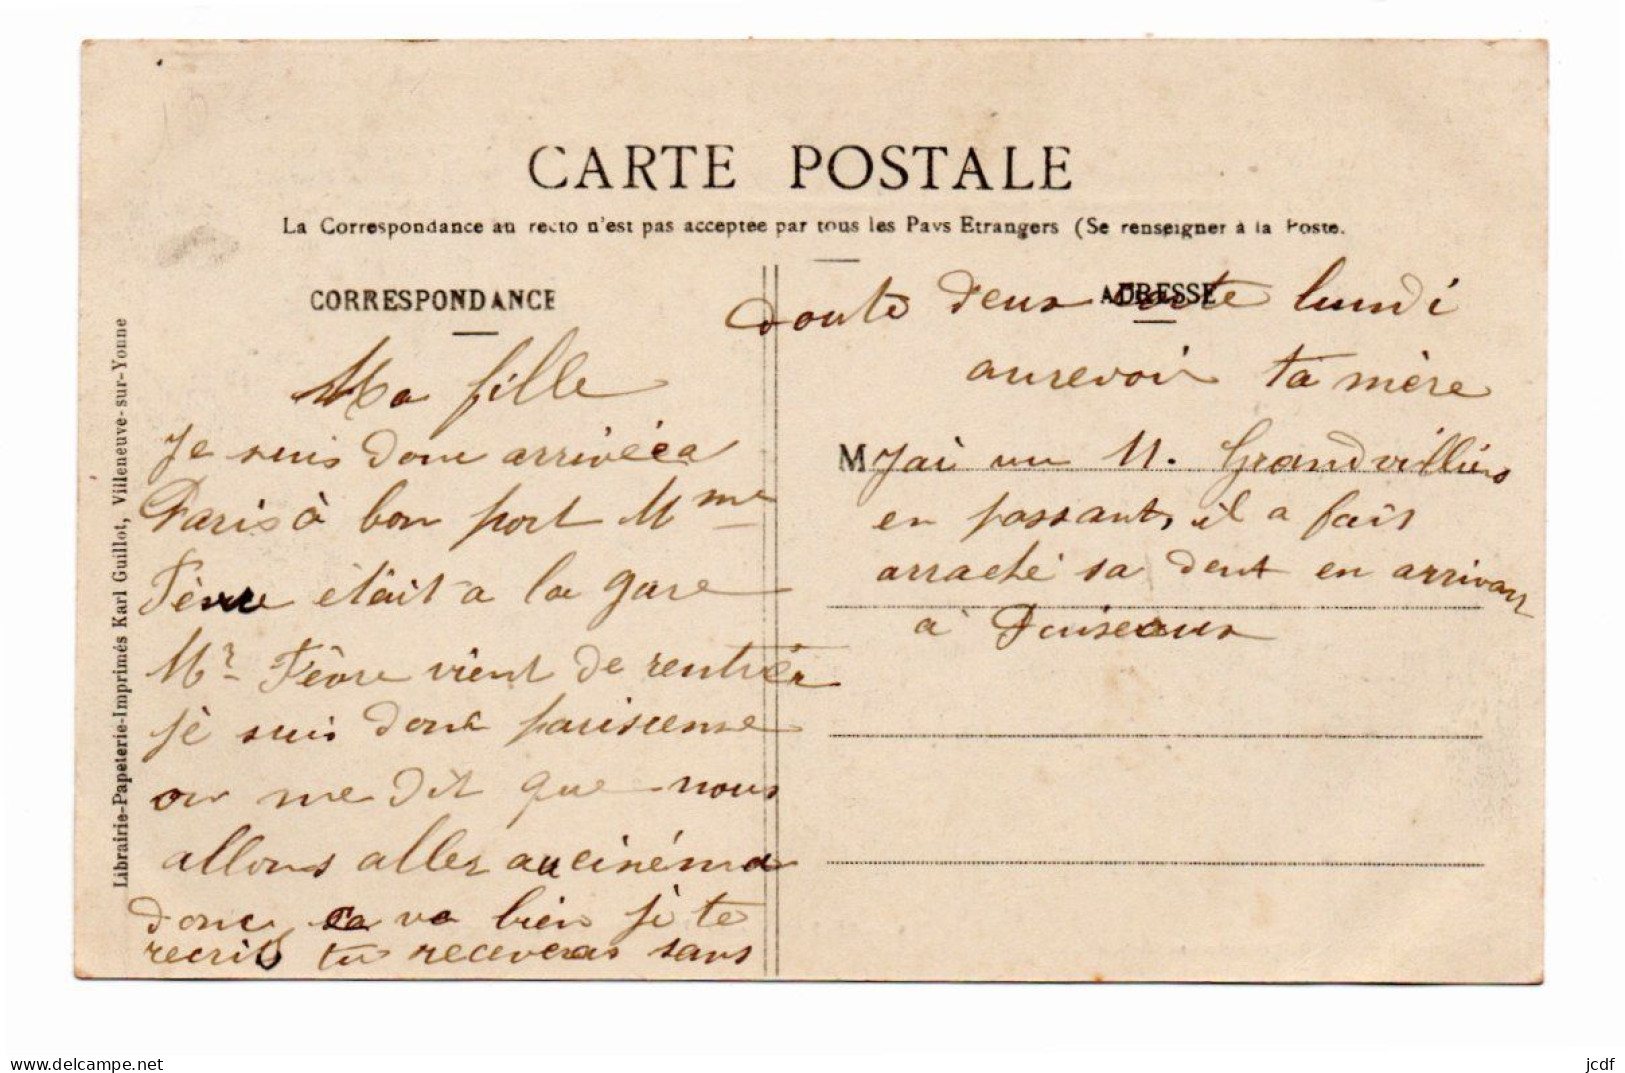 CARTE POSTALE
La Correspondance au recto n'est pas acceptee par tous les Pays Etrangers (Se renseigner à la Poste.
CORRESPONDANCE
Ma fille
Je suis donc arrivée a
Paris à bon port Mme
Fèvre était a la gare
Mr Fèvre vient de rentrér
jè suis donc parisienne
on me dit que nous
allons aller au cinéma
donc sa va bien jè te
recris tu receveras sans
ADRESSE
doute deux carte lundi
aurevoir ta mère
M
J'ai vu M. Grandvilliers
en passant, il a fait
arraché sa dent en arrivant
à Puiseaux
Librairie-Papeterie-Imprimés Karl Guillot, Villeneuve-sur-Yonne
www.delcampe.net
jcdf